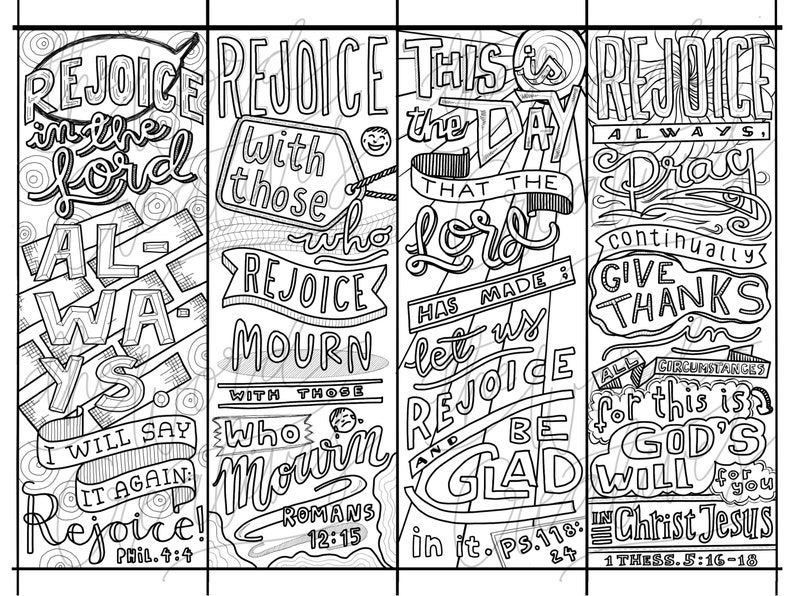 REJOICE
in the
Lord
AL-
WA-
YS.
I WILL SAY
IT AGAIN:
Rejoice!
PHIL. 4:4
REJOICE
with
those
who
REJOICE
MOURN
WITH THOSE
WHO
Mourn
ROMANS
12:15
THIS is
the DAY
THAT THE
Lord
HAS MADE;
let us
REJOICE
AND BE
GLAD
in it. PS. 118:
24
REJOICE
ALWAYS,
Pray
continually
GIVE
THANKS
in
ALL CIRCUMSTANCES
for this is
GOD'S
WILL for
you
IN Christ Jesus
1 THESS. 5:16-18